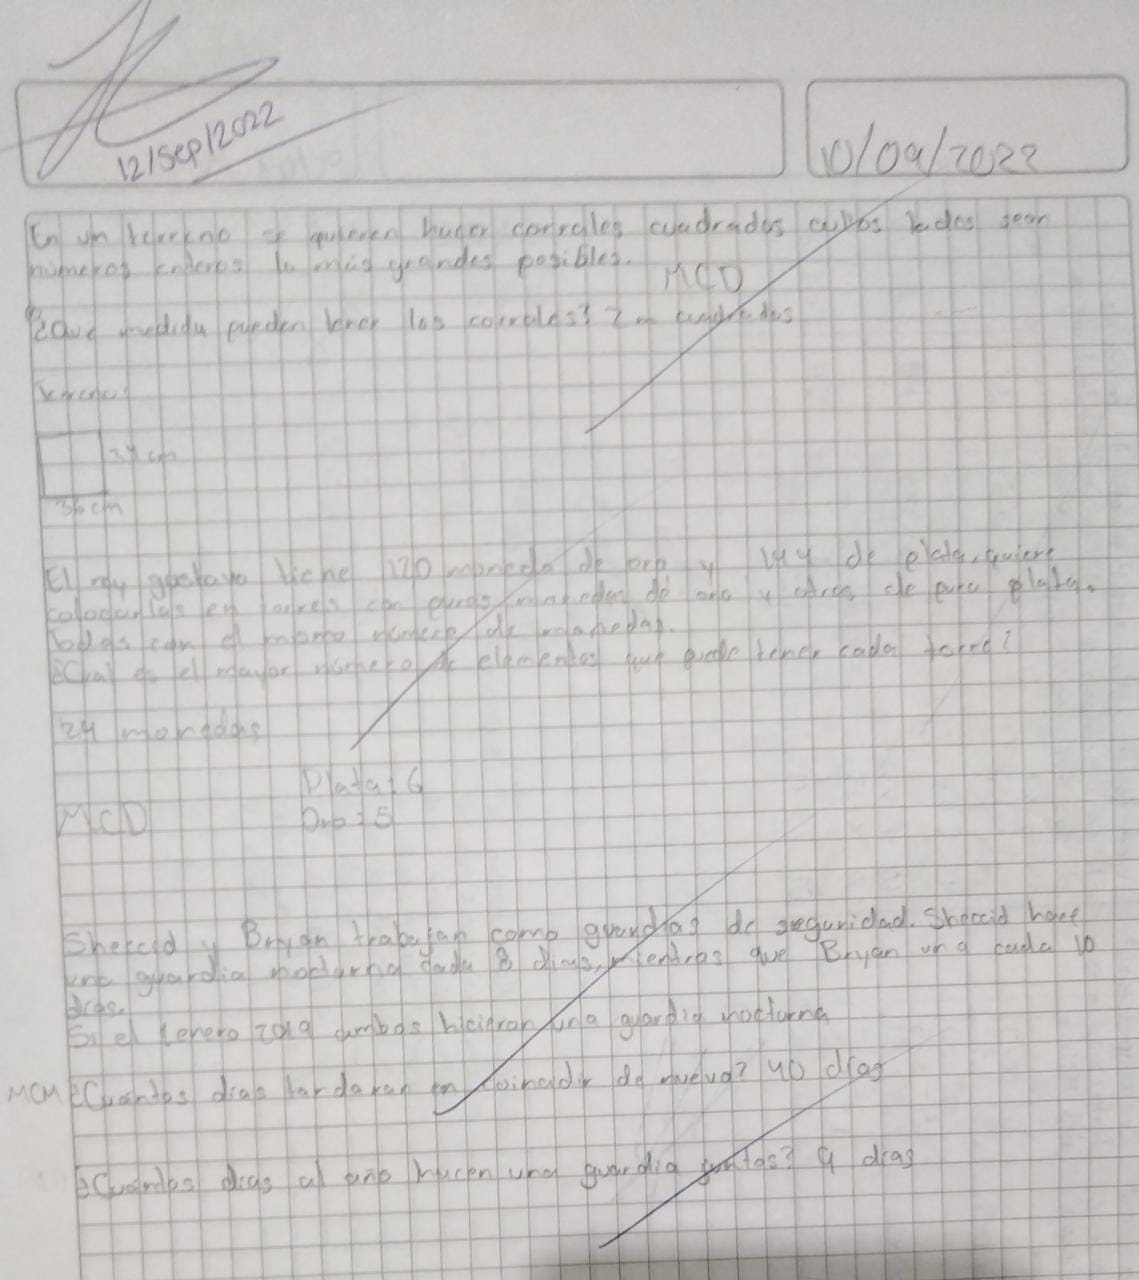 12/sep/2022
10/09/2022
En un terreno se quieren hacer corrales cuadrados cullos lados sean
números enteros lo más grandes posibles.
MCD
¿Que medida pueden tener los corrales? 2 m cuadrados
Terreno:
34 cm
36 cm
El rey gustavo tiene 120 moneda de oro y 144 de plata, quiere
colocarlas en torres con puras monedas de oro y otras de pura plata,
todas con el mismo número de monedas.
¿Cual es el mayor número de elementos que puede tener cada torre?
24 monedas
Plata: 6
MCD
Oro = 5
Sheccid y Bryan trabajan como guardias de seguridad. Sheccid hace
una guardia nocturna cada 8 dias, mientras que Bryan una cada 10
dias.
Si el 1 enero 2019 ambos hicieron una guardia nocturna
MCM ¿Cuantos dias tardaran en coincidir de nuevo? 40 dias
¿Cuantos dias al año hacen una guardia juntos? 9 dias